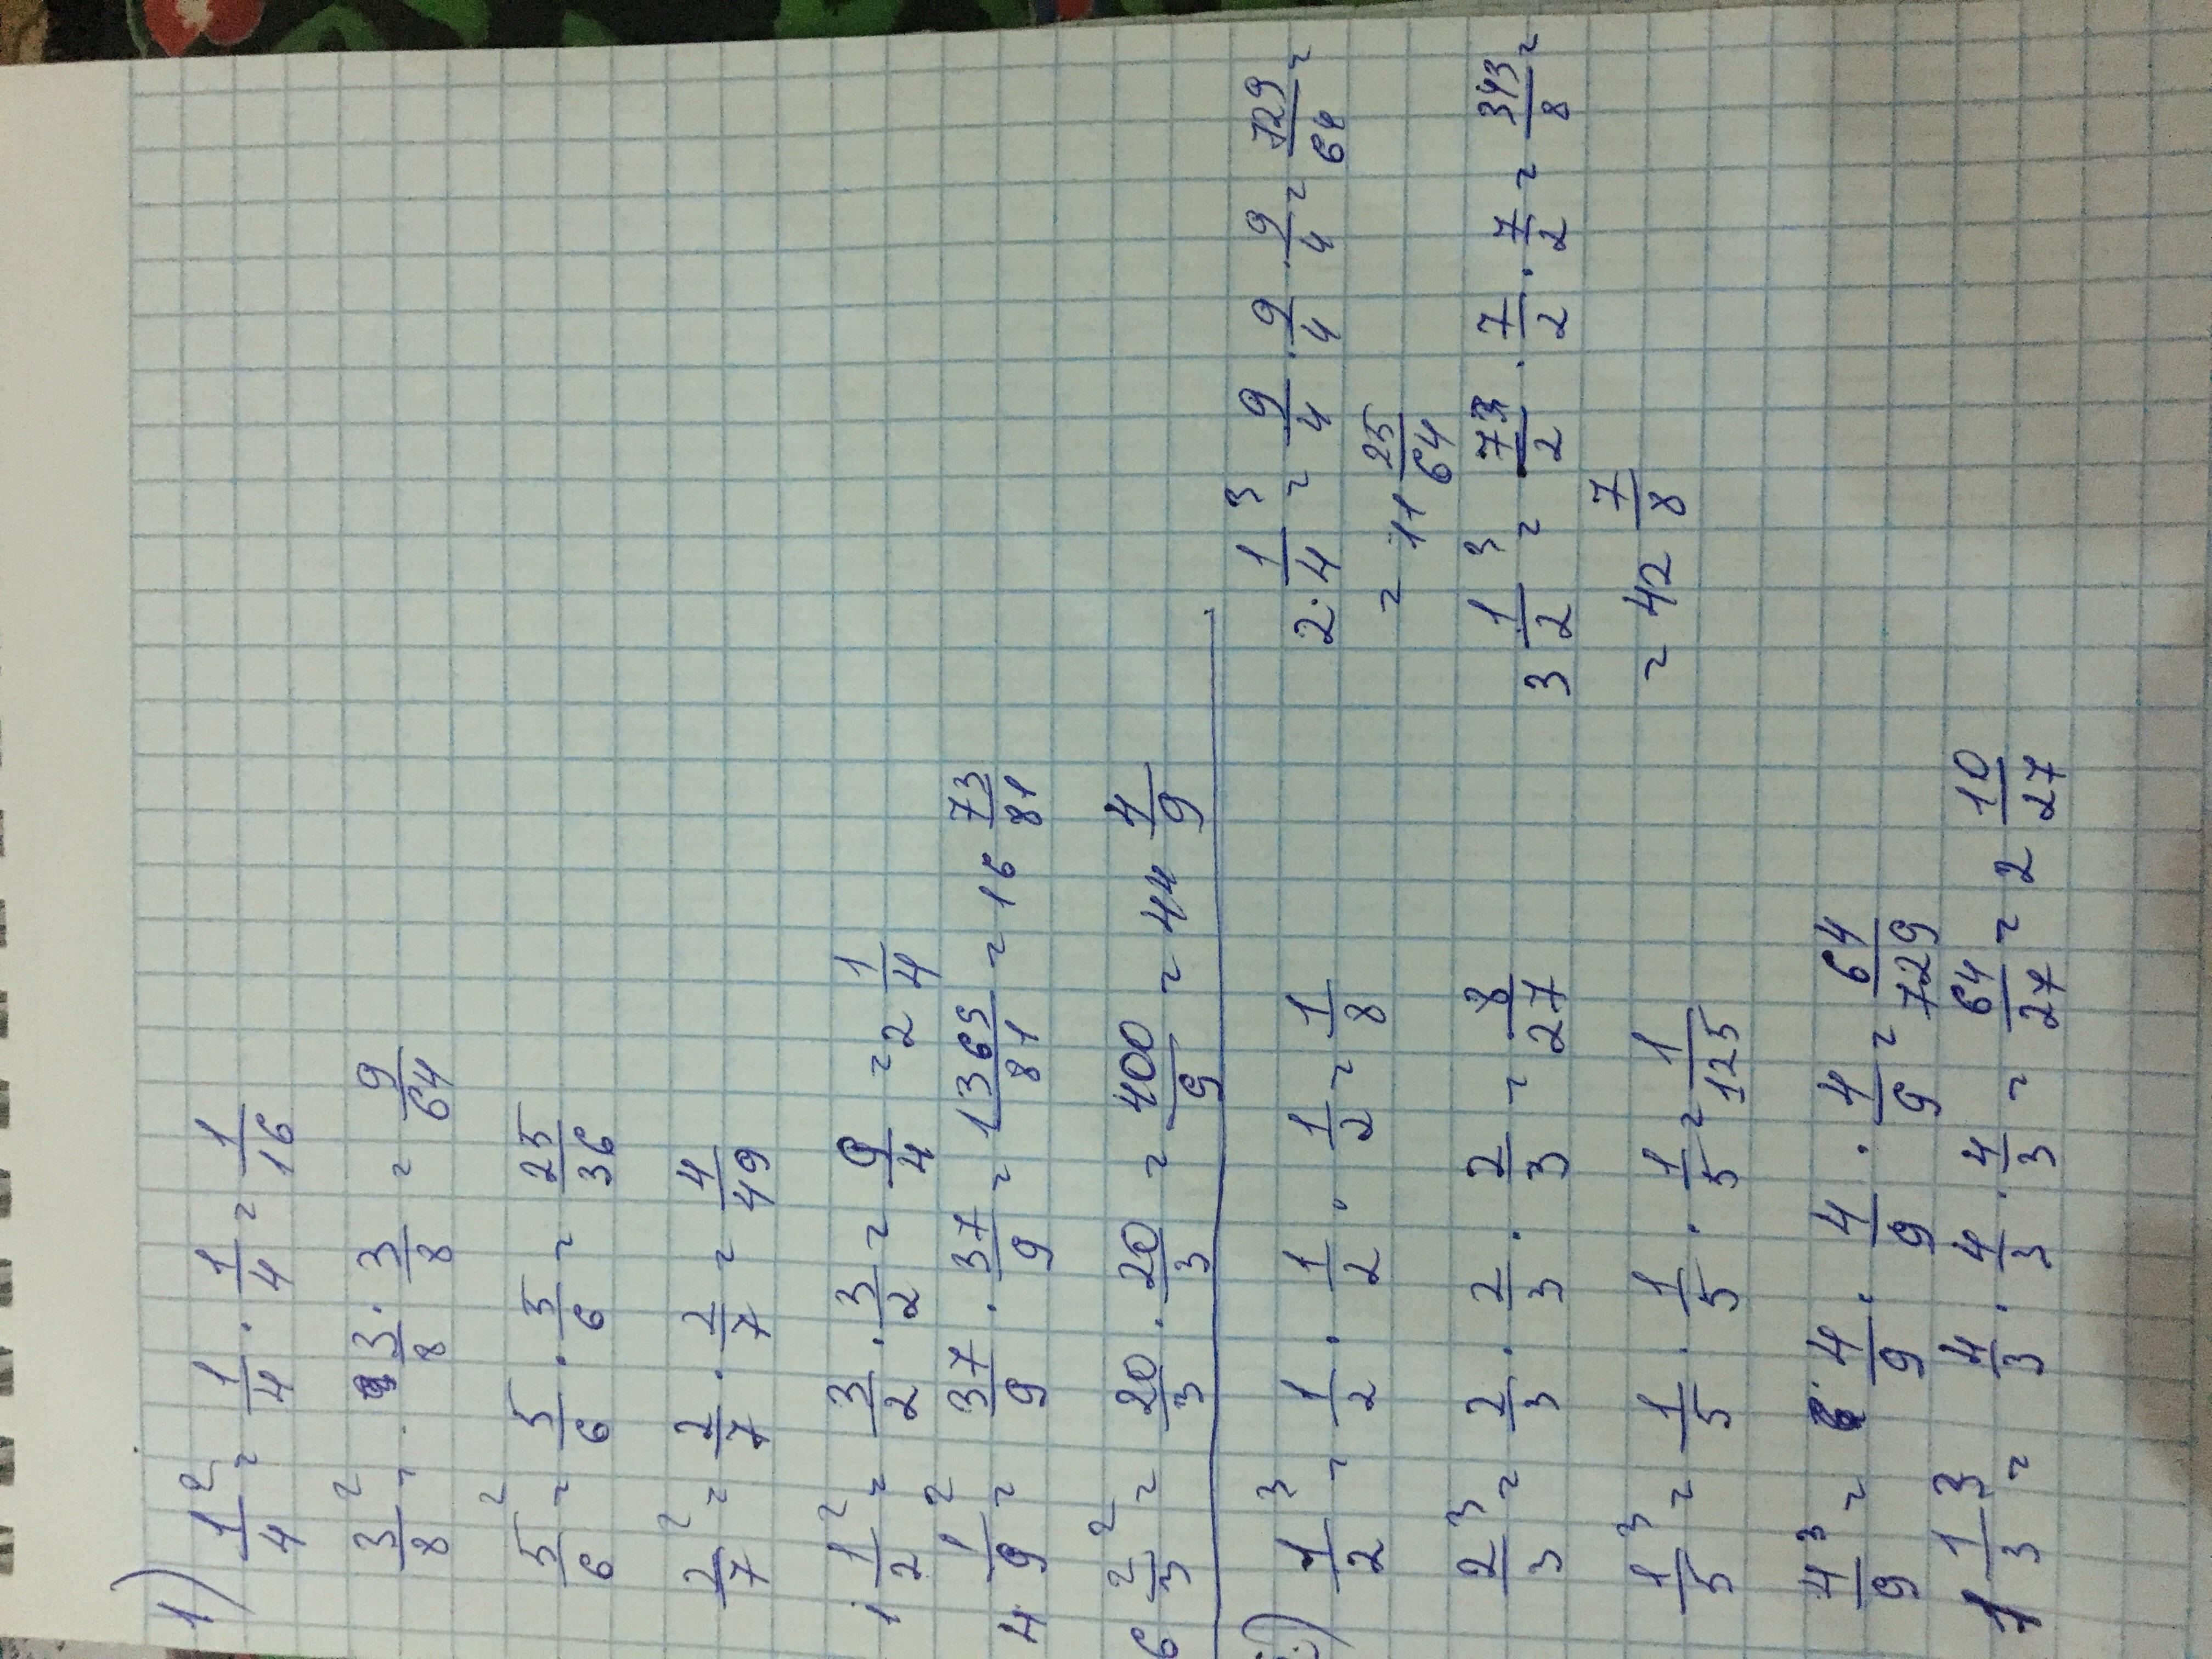 1) 1/4² = 1/4 · 1/4 = 1/16
3/8² = 3/8 · 3/8 = 9/64
5/6² = 5/6 · 5/6 = 25/36
2/7² = 2/7 · 2/7 = 4/49
1 1/2² = 3/2 · 3/2 = 9/4 = 2 1/4
4 1/9² = 37/9 · 37/9 = 1369/81 = 16 73/81
6 2/3² = 20/3 · 20/3 = 400/9 = 44 4/9
1/2³ = 1/2 · 1/2 · 1/2 = 1/8
2/3³ = 2/3 · 2/3 · 2/3 = 8/27
1/5³ = 1/5 · 1/5 · 1/5 = 1/125
4/9³ = 4/9 · 4/9 · 4/9 = 64/729
1 1/3³ = 4/3 · 4/3 · 4/3 = 64/27 = 2 10/27
2 · 1/4³ = 9/4 · 9/4 · 9/4 = 729/64 =
= 11 25/64
3 1/2³ = 7/2 · 7/2 · 7/2 = 343/8 =
= 42 7/8